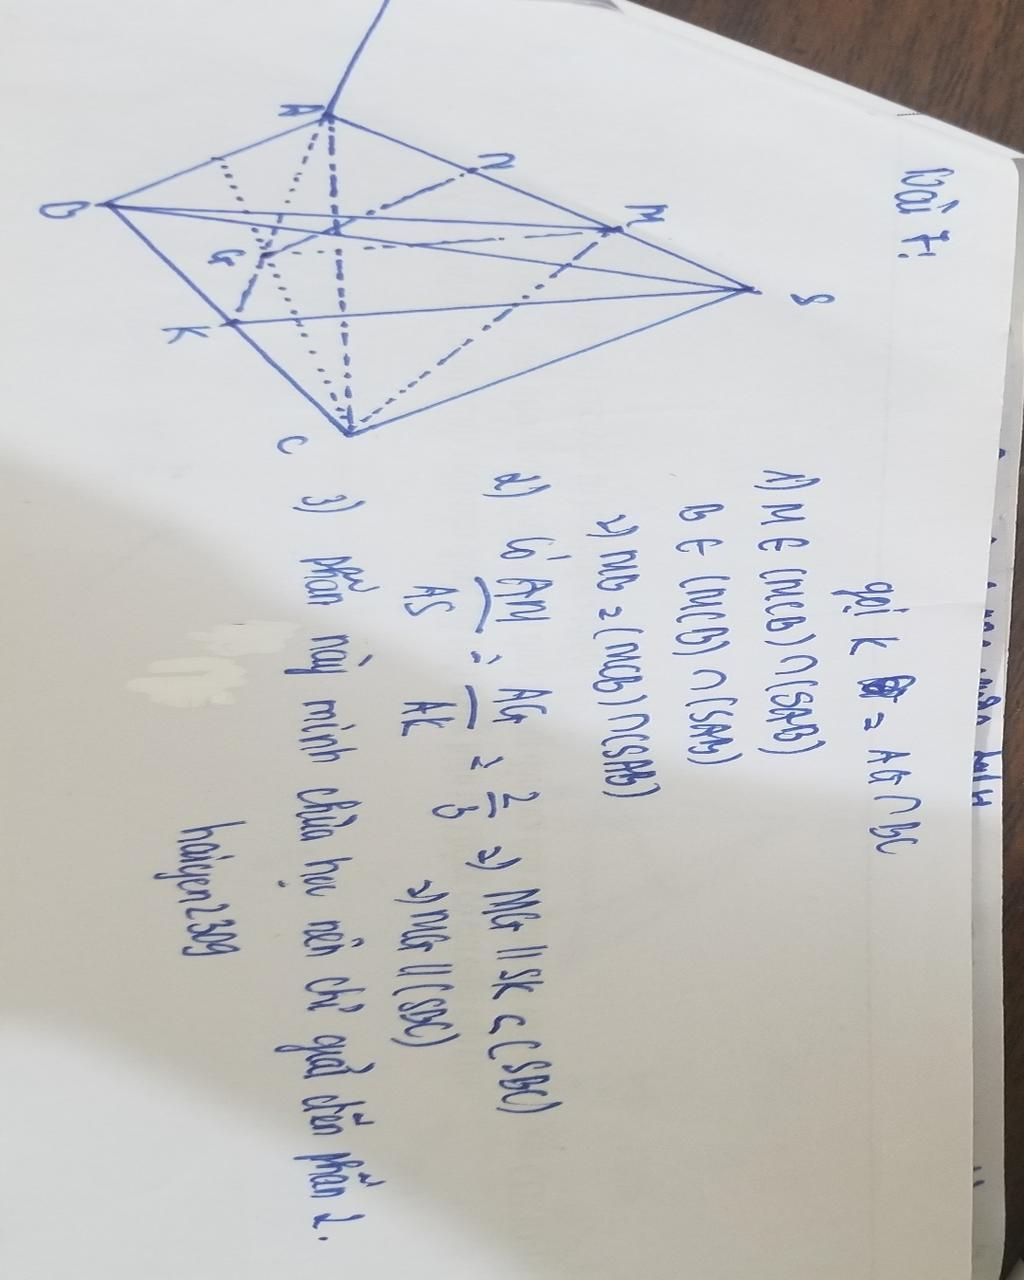 Bài 7:
S
M
N
A
B
G
K
C
gọi K = AG ∩ BC
1) M ∈ (MCB) ∩ (SAB)
B ∈ (MCB) ∩ (SAB)
=) MB = (MCB) ∩ (SAB)
2) Có AM/AS = AG/AK = 2/3 =) MG // SK ⊂ (SBC)
=) MG // (SBC)
3) phần này mình chưa học nên chỉ giải đến phần 2.
haiyen2309